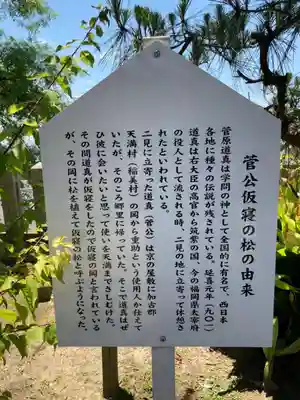 菅公仮寝の松の由来
菅原道真は学問の神として全国的に有名で、西日本
各地に種々の伝説が残されている。延喜元年（九〇一）
道真は右大臣の高官から筑紫の国、今の福岡県太宰府
の役人として流される時、二見の地に立寄って休憩さ
れたといわれている。
二見に立寄った道真（菅公）は京の屋敷に加古郡
天満村（稲美村）の岡から重助という使用人が仕えて
いたが、そのころ郷里に帰っていた。そこで道真はぜ
ひ彼に会いたいと思って使いを天満までさしむけた。
その間道真が仮寝をしたので仮寝の岡と言われている
が、その岡に松を植えて仮寝の松と呼ぶようになった。